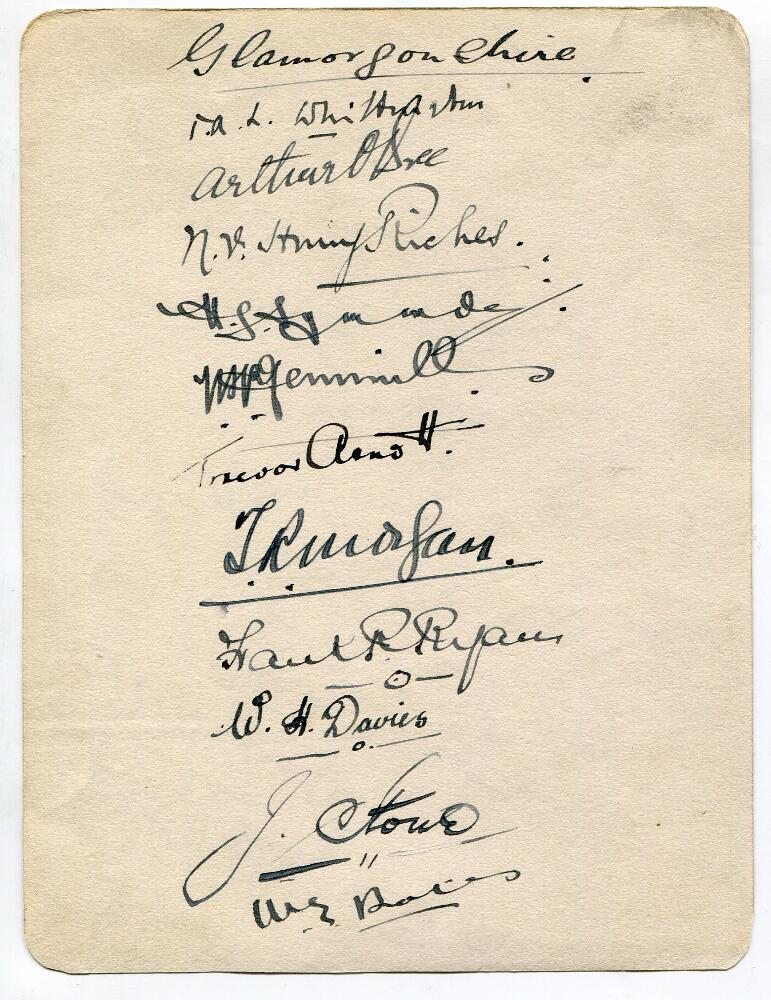 Glamorgonshire.
T.A.L. Whittington
Arthur O'Bree
N.V. Henry Riches.
H.G. Symonds
W H Gemmill
Trevor Arnott.
T.R. Morgan.
Frank P. Ryan
W. H. Davies
J. Stone
W.E. Bates